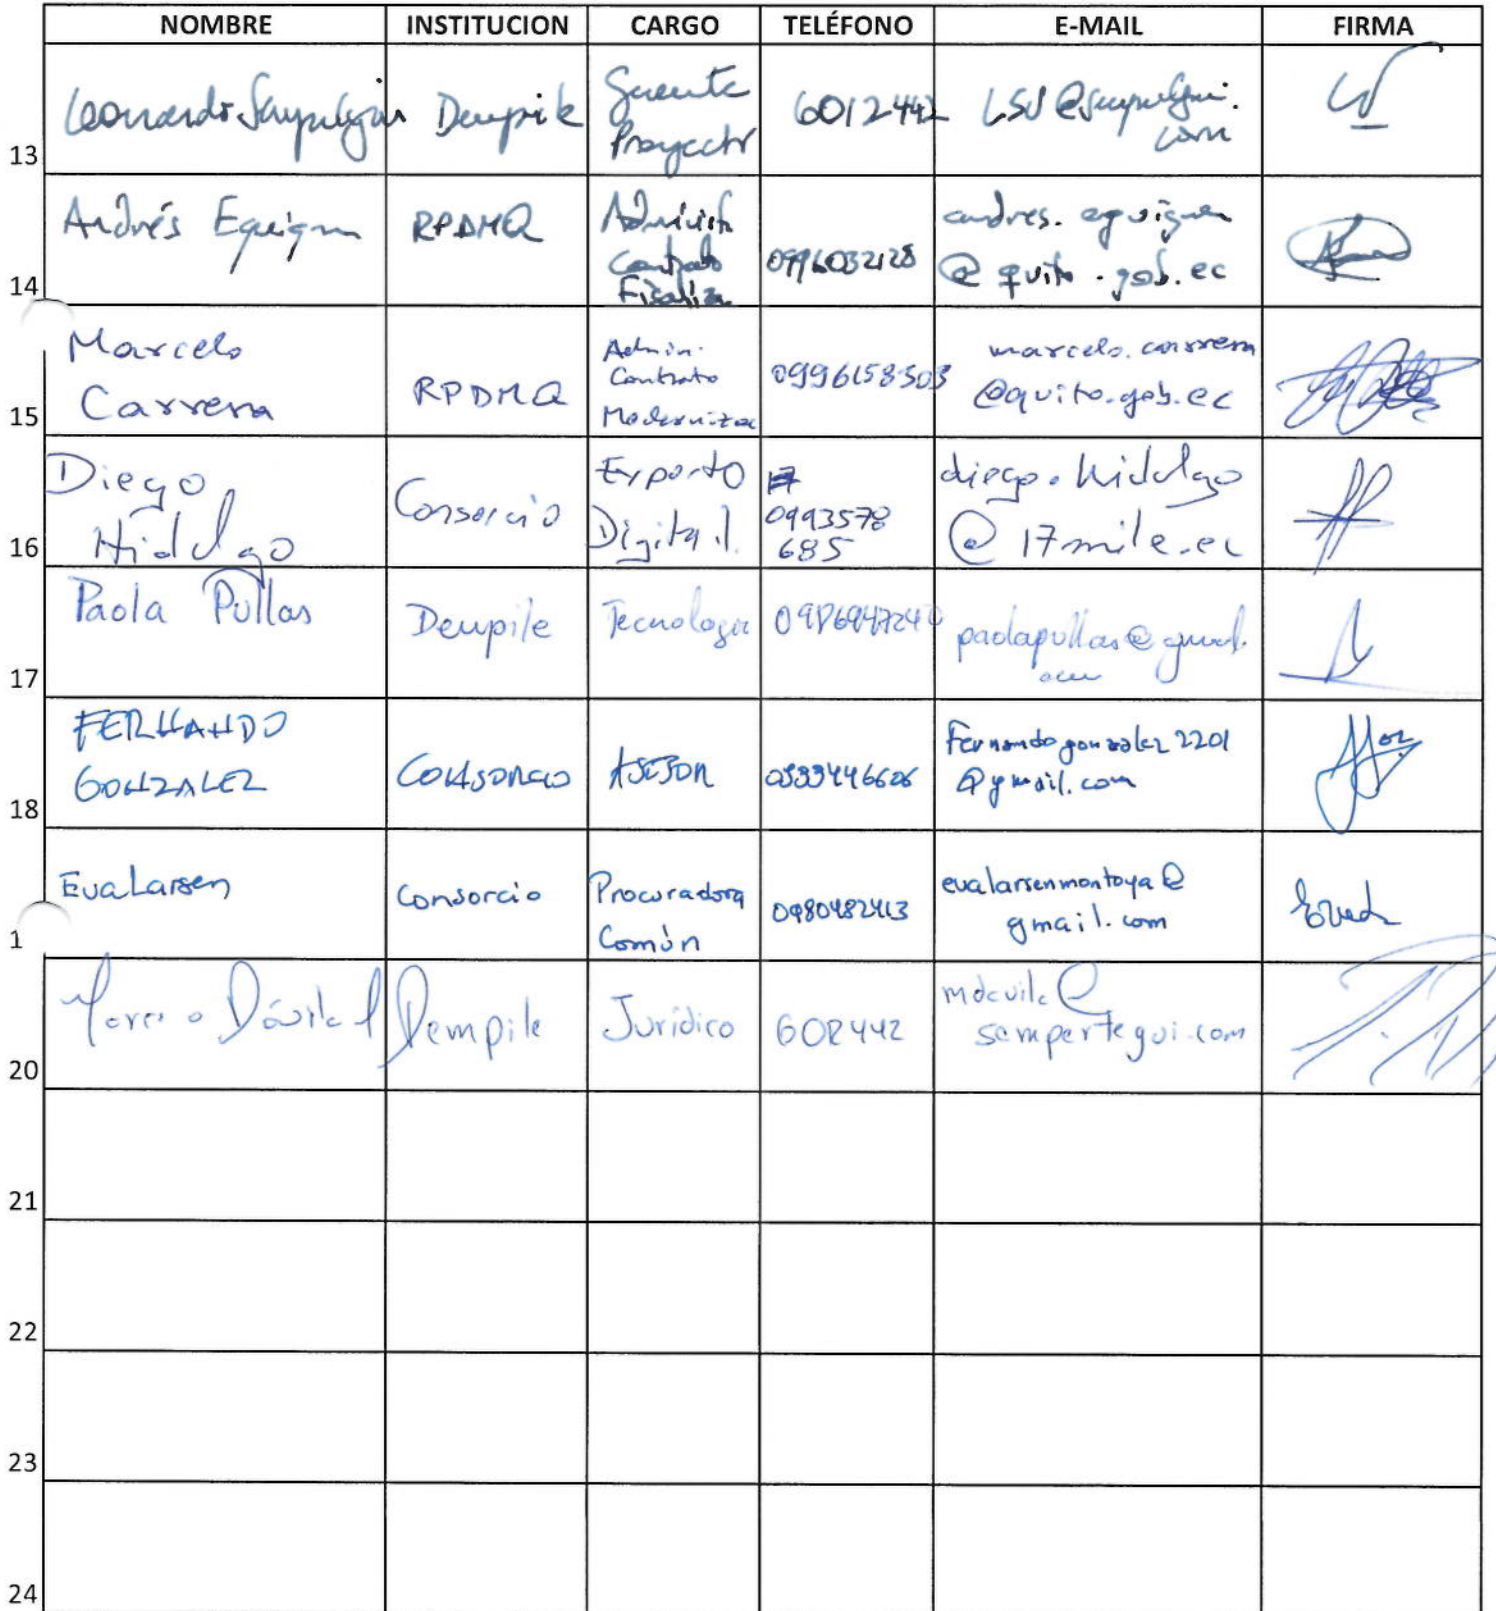 NOMBRE INSTITUCION CARGO TELÉFONO E-MAIL FIRMA
13 Leonardo Deupile Gerente Proyecto 6012442
14 Andrés RPDMQ Contrato 0996032128 @quito.gob.ec
15 Marcelo Carrera RPDMQ Admin. Contrato Moderniza 0996158303 marcelo.carrera @quito.gob.ec
16 Diego Hidalgo Consorcio Experto Digital 0993578 685 diego.hidalgo @17mile.ec
17 Paola Pullas Deupile Tecnología paolapullas@gmail.
18 FERNANDO GONZALEZ CONSORCIO ASESOR Fernandogonzalez2201 @gmail.com
1 Eva Larsen Consorcio Procuradora Común 0980482413 evalarsenmontoya@ gmail.com
20 Dávila Dempile Jurídico 602442 mdavila@ sempertegui.com
21
22
23
24